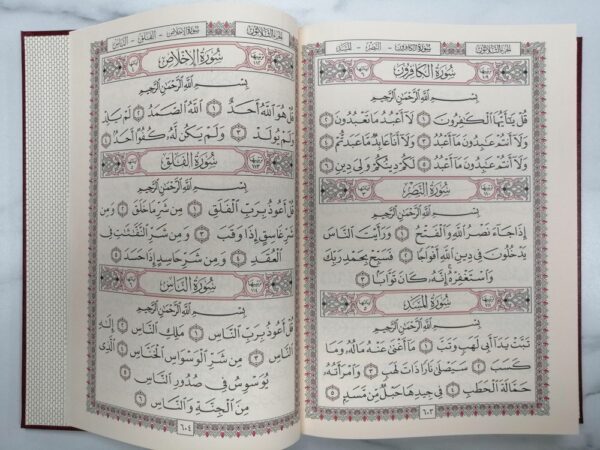 سورة الكافرون - النصر - المسد
الجزء الثلاثون
سُورَةُ الكَافِرُونَ
بِسْمِ اللَّهِ الرَّحْمَٰنِ الرَّحِيمِ
قُلْ يَٰٓأَيُّهَا ٱلْكَٰفِرُونَ ١ لَآ أَعْبُدُ مَا تَعْبُدُونَ ٢
وَلَآ أَنتُمْ عَٰبِدُونَ مَآ أَعْبُدُ ٣ وَلَآ أَنَا۠ عَابِدٌ مَّا عَبَدتُّمْ ٤
وَلَآ أَنتُمْ عَٰبِدُونَ مَآ أَعْبُدُ ٥ لَكُمْ دِينُكُمْ وَلِىَ دِينِ ٦
سُورَةُ النَّصْرِ
بِسْمِ اللَّهِ الرَّحْمَٰنِ الرَّحِيمِ
إِذَا جَآءَ نَصْرُ ٱللَّهِ وَٱلْفَتْحُ ١ وَرَأَيْتَ ٱلنَّاسَ
يَدْخُلُونَ فِى دِينِ ٱللَّهِ أَفْوَاجًا ٢ فَسَبِّحْ بِحَمْدِ رَبِّكَ
وَٱسْتَغْفِرْهُ إِنَّهُۥ كَانَ تَوَّابًۢا ٣
سُورَةُ المَسَدِ
بِسْمِ اللَّهِ الرَّحْمَٰنِ الرَّحِيمِ
تَبَّتْ يَدَآ أَبِى لَهَبٍ وَتَبَّ ١ مَآ أَغْنَىٰ عَنْهُ مَالُهُۥ وَمَا
كَسَبَ ٢ سَيَصْلَىٰ نَارًا ذَاتَ لَهَبٍ ٣ وَٱمْرَأَتُهُۥ
حَمَّالَةَ ٱلْحَطَبِ ٤ فِى جِيدِهَا حَبْلٌ مِّن مَّسَدٍۭ ٥
٦٠٣
الجزء الثلاثون
سورة الإخلاص - الفلق - الناس
سُورَةُ الإِخْلَاصِ
بِسْمِ اللَّهِ الرَّحْمَٰنِ الرَّحِيمِ
قُلْ هُوَ ٱللَّهُ أَحَدٌ ١ ٱللَّهُ ٱلصَّمَدُ ٢ لَمْ يَلِدْ
وَلَمْ يُولَدْ ٣ وَلَمْ يَكُن لَّهُۥ كُفُوًا أَحَدٌۢ ٤
سُورَةُ الفَلَقِ
بِسْمِ اللَّهِ الرَّحْمَٰنِ الرَّحِيمِ
قُلْ أَعُوذُ بِرَبِّ ٱلْفَلَقِ ١ مِن شَرِّ مَا خَلَقَ ٢ وَمِن
شَرِّ غَاسِقٍ إِذَا وَقَبَ ٣ وَمِن شَرِّ ٱلنَّفَّٰثَٰتِ فِى
ٱلْعُقَدِ ٤ وَمِن شَرِّ حَاسِدٍ إِذَا حَسَدَ ٥
سُورَةُ النَّاسِ
بِسْمِ اللَّهِ الرَّحْمَٰنِ الرَّحِيمِ
قُلْ أَعُوذُ بِرَبِّ ٱلنَّاسِ ١ مَلِكِ ٱلنَّاسِ ٢ إِلَٰهِ
ٱلنَّاسِ ٣ مِن شَرِّ ٱلْوَسْوَاسِ ٱلْخَنَّاسِ ٤ ٱلَّذِى
يُوَسْوِسُ فِى صُدُورِ ٱلنَّاسِ ٥
مِنَ ٱلْجِنَّةِ وَٱلنَّاسِ ٦
٦٠٤